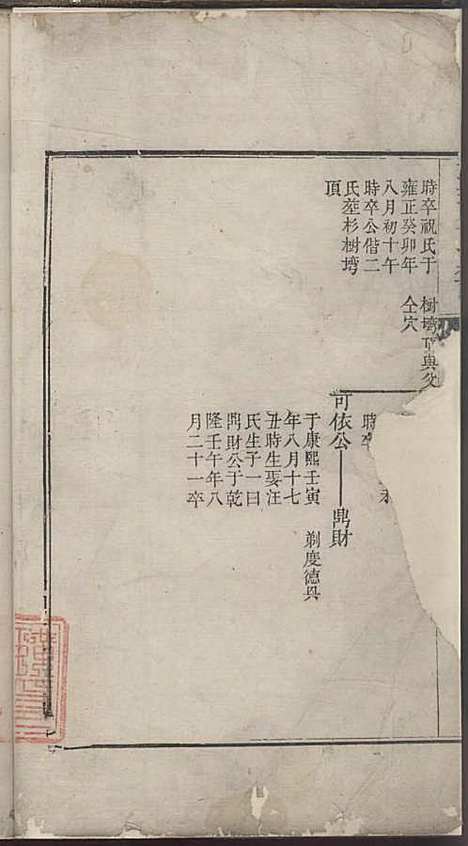 時卒祝氏于
雍正癸卯年
八月初十午
時卒公偕二
氏塟杉樹塆
頂
樹塆下與父
仝穴
時卒
可依公——鼎財
于康熙壬寅
年八月十七
丑時生娶汪
氏生子一曰
鼎財公于乾
隆壬午年八
月二十一卒
剃度德興